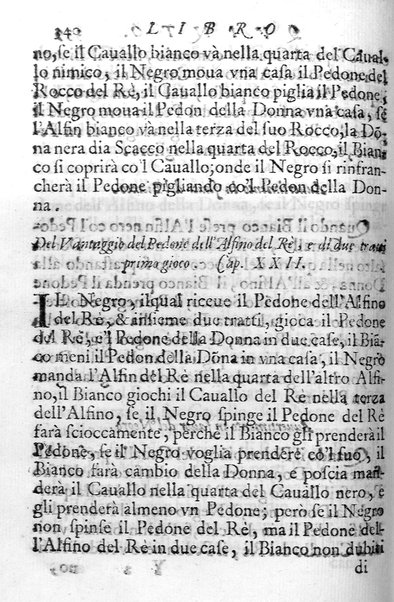 340 LIBRO
no, se il Cauallo bianco và nella quarta del Caual-
lo nimico, il Negro moua vna casa il Pedone del
Rocco del Rè, il Cauallo bianco piglia il Pedone,
il Negro moua il Pedon della Donna vna casa, se
l'Alfin bianco và nella terza del suo Rocco, la Dō
na nera dia Scacco nella quarta del Rocco, il Bian
co si coprirà co'l Cauallo; onde il Negro si rinfran-
cherà il Pedone pigliando co'l Pedon della Don-
na.
Del Vantaggio del Pedone dell'Alfino del Rè, e di due tratti
primo gioco. Cap. XXII.
IL Negro, ilqual riceue il Pedone dell'Alfino
del Rè, & insieme due tratti, gioca il Pedone
del Rè, e'l Pedone della Donna in due case, il Biā
co meni il Pedon della Dōna in vna casa, il Negro
manda l'Alfin del Rè nella quarta dell'altro Alfi-
no, il Bianco giochi il Cauallo del Re nella terza
dell'Alfino, se il Negro spinge il Pedone del Rè
farà scioccamente, perche il Bianco gli prenderà il
Pedone, se il Negro voglia prendere co'l suo, il
Bianco farà cambio della Donna, e poscia man-
derà il Cauallo nella quarta del Cauallo nero, e
gli prenderà almeno vn Pedone; però se il Negro
non spinse il Pedone del Rè, ma il Pedone del-
l'Alfino del Rè in due case, il Bianco non dubiti
di